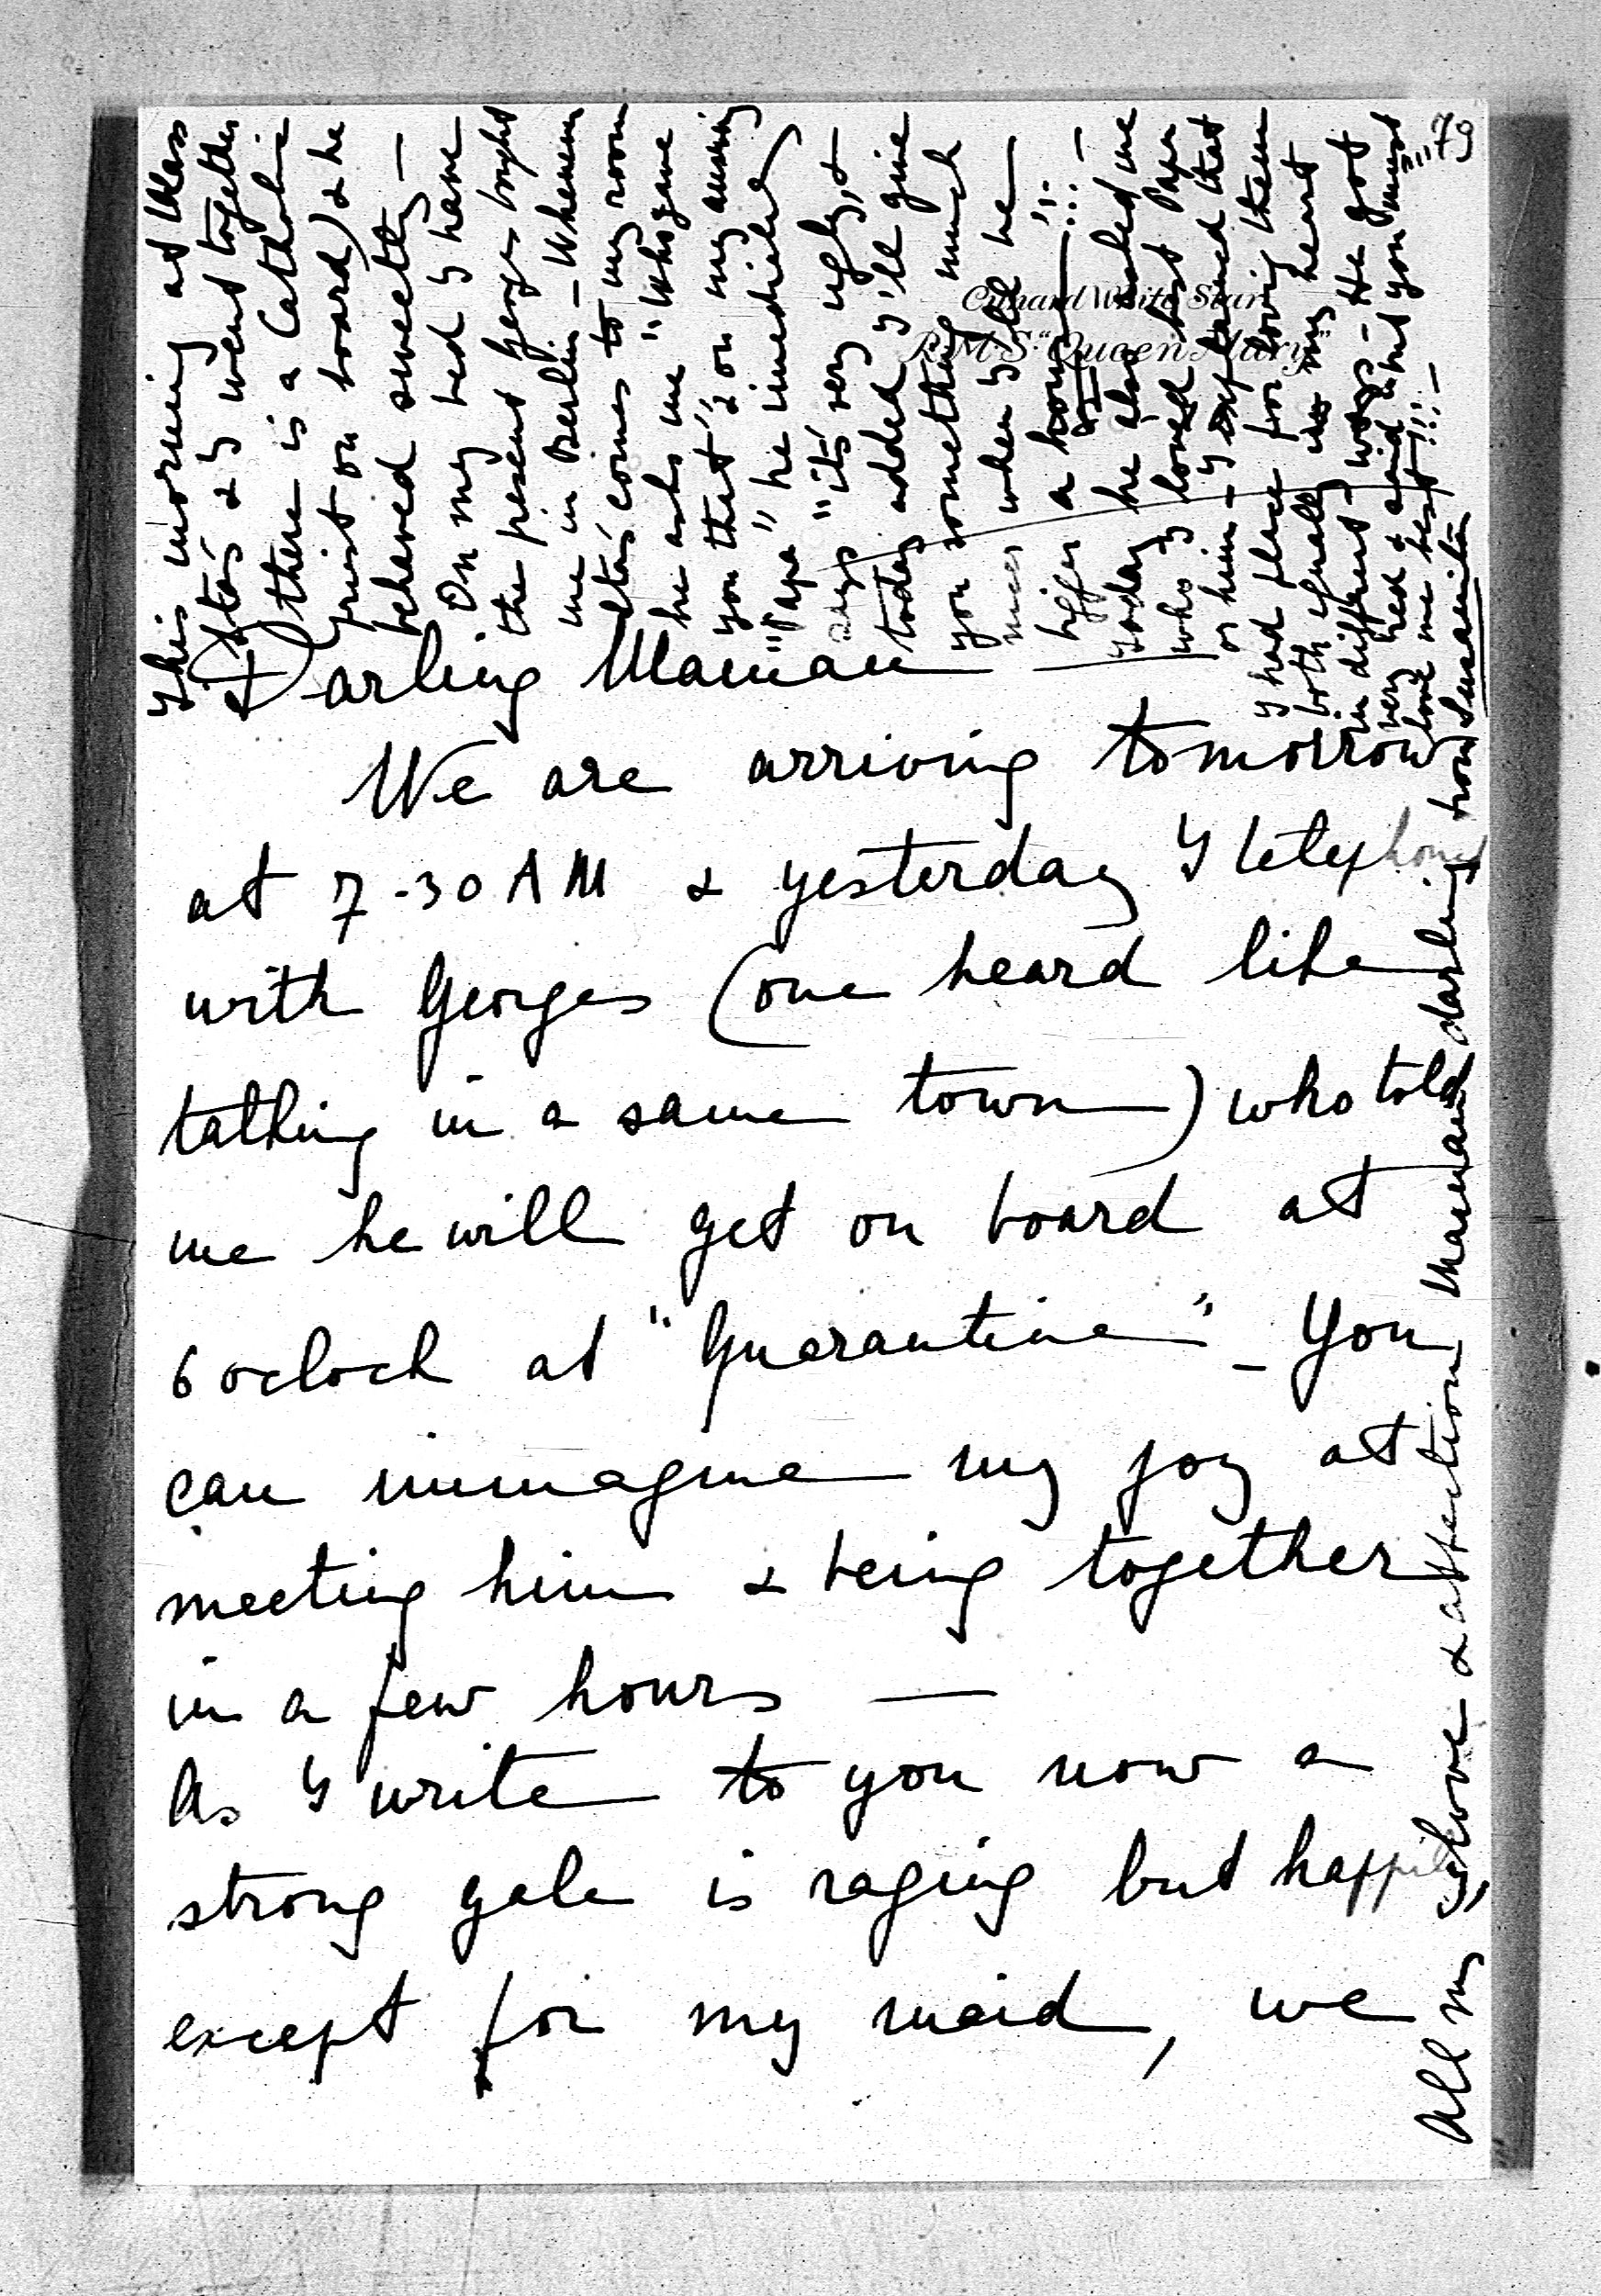 79
Cunard White Star
R.M.S. "Queen Mary"
Darling Maman —
We are arriving tomorrow
at 7-30 AM & yesterday I telephoned
with Georges (one heard like
talking in a same town) who told
me he will get on board at
6 oclock at "Quarantine" - You
can immagine my joy at
meeting him & being together
in a few hours —
As I write to you now a
strong gale is raging but happily,
except for my maid, we
this morning at Mass
& I went together
there is a Catholic
priest on board) & he
behaved sweetly —
On my bed I have
the present Georges bought
me in Berlin - Whenever
comes to my room
he asks me "Who gave
you that" & on my answering
"Papa" he imediately
says "it's very ugly, &
today added I'll give
you something much
nicer when I'll be
bigger a
Today he also asked me
who I loved best Papa
or him - I explained that
I had place for loving them
both equally in my heart
in different ways - He got
very red & said "but you must
love me best"!!! —
All my love & affection Maman darling from